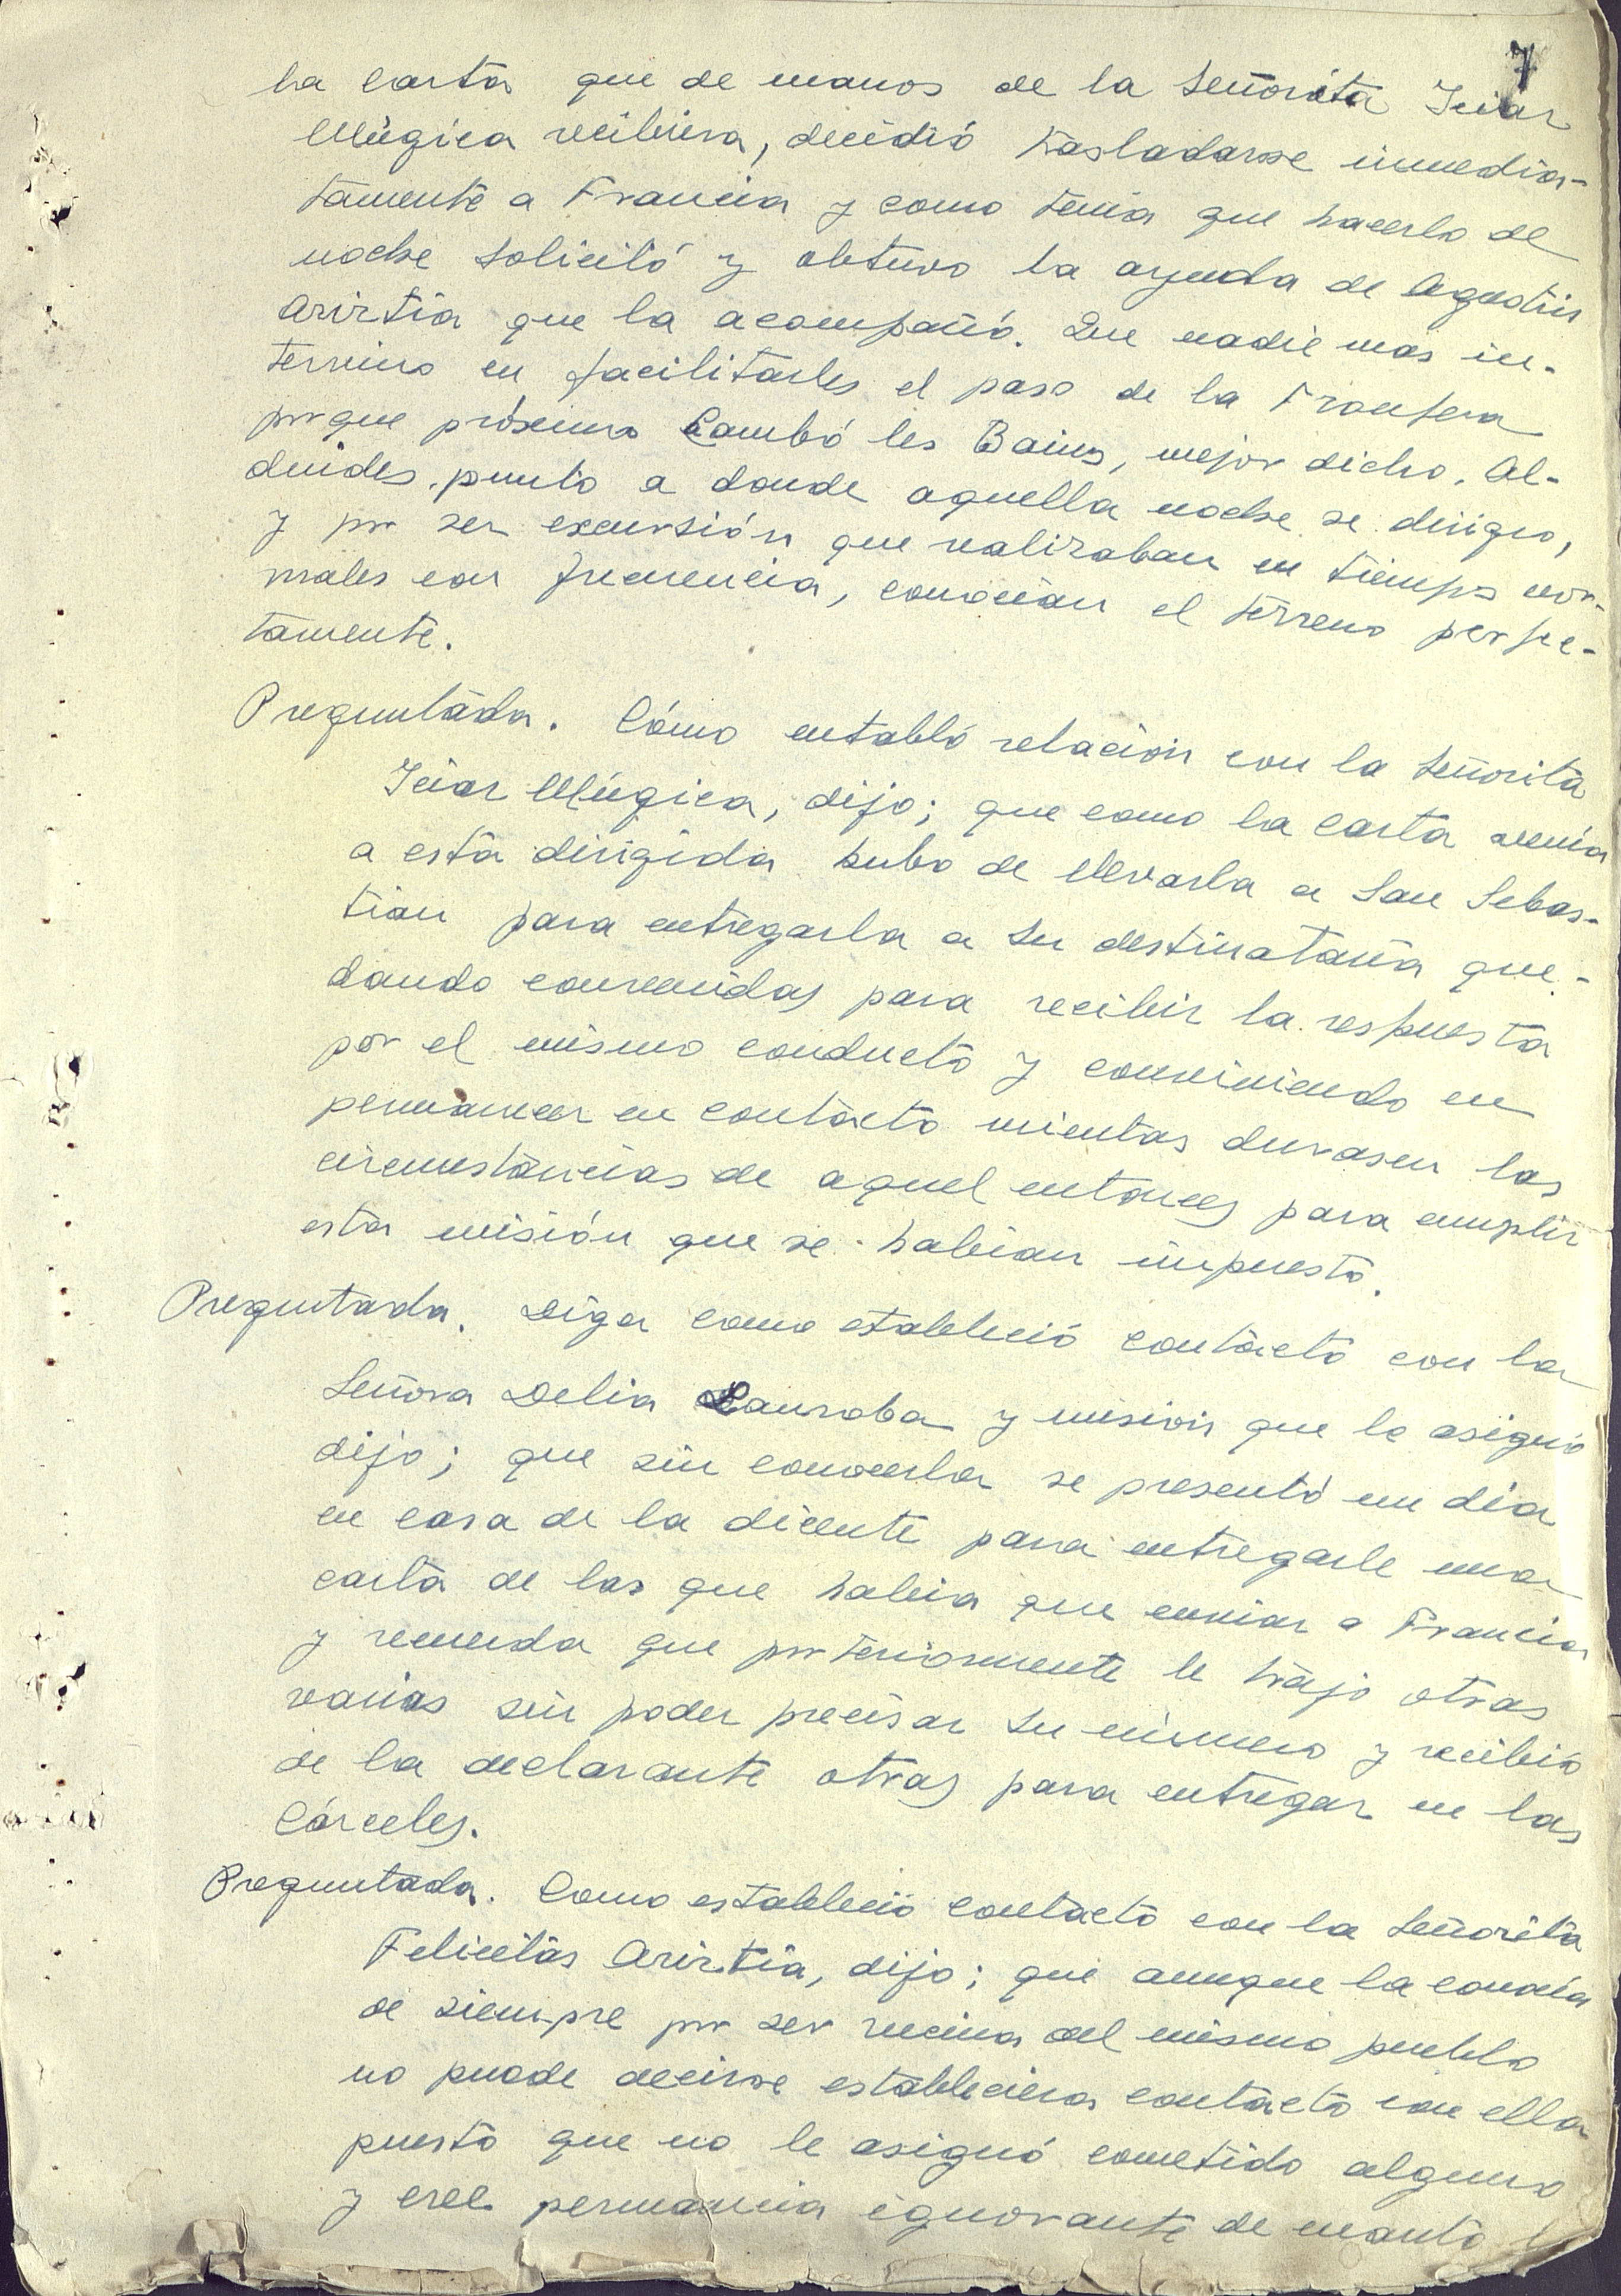 7
la carta que de manos de la Señorita Iciar
Múgica recibiera, decidió trasladarse inmedia-
tamente a Francia y como tenia que hacerlo de
noche solicitó y obtuvo la ayuda de Agustin
Ariztia que la acompañó. Que nadie mas in-
tervino en facilitarles el paso de la Frontera
porque próximo Cambó les Bains, mejor dicho, Al-
duides, punto a donde aquella noche se dirigio,
y por ser excursión que realizaban en tiempos nor-
males con frecuencia, conocian el terreno perfec-
tamente.
Preguntada. Cómo entabló relación con la Señorita
Iciar Múgica, dijo; que como la carta venia
a esta dirigida hubo de llevarla a San Sebas-
tian para entregarla a su destinataria que-
dando convenidas para recibir la respuesta
por el mismo conducto y conviniendo en
permanecer en contacto mientas durasen las
circunstancias de aquel entonces para cumplir
esta misión que se habian impuesto.
Preguntada. Diga como estableció contacto con la
Señora Delia Lauroba y mision que le asignó
dijo; que sin conocerla se presentó un dia
en casa de la dicente para entregarle una
carta de las que habia que enviar a Francia
y recuerda que porteriormente le trajo otras
varias sin poder precisar su número y recibió
de la declarante otras para entregar en las
Cárceles.
Preguntada. Como estableció contacto con la Señorita
Felicitas Ariztia, dijo; que aunque la conocia
de siempre por ser vecina del mismo pueblo
no puede decirse estableciera contacto con ella
puesto que no le asignó cometido alguno
y cree permanecia ignorante de cuanto